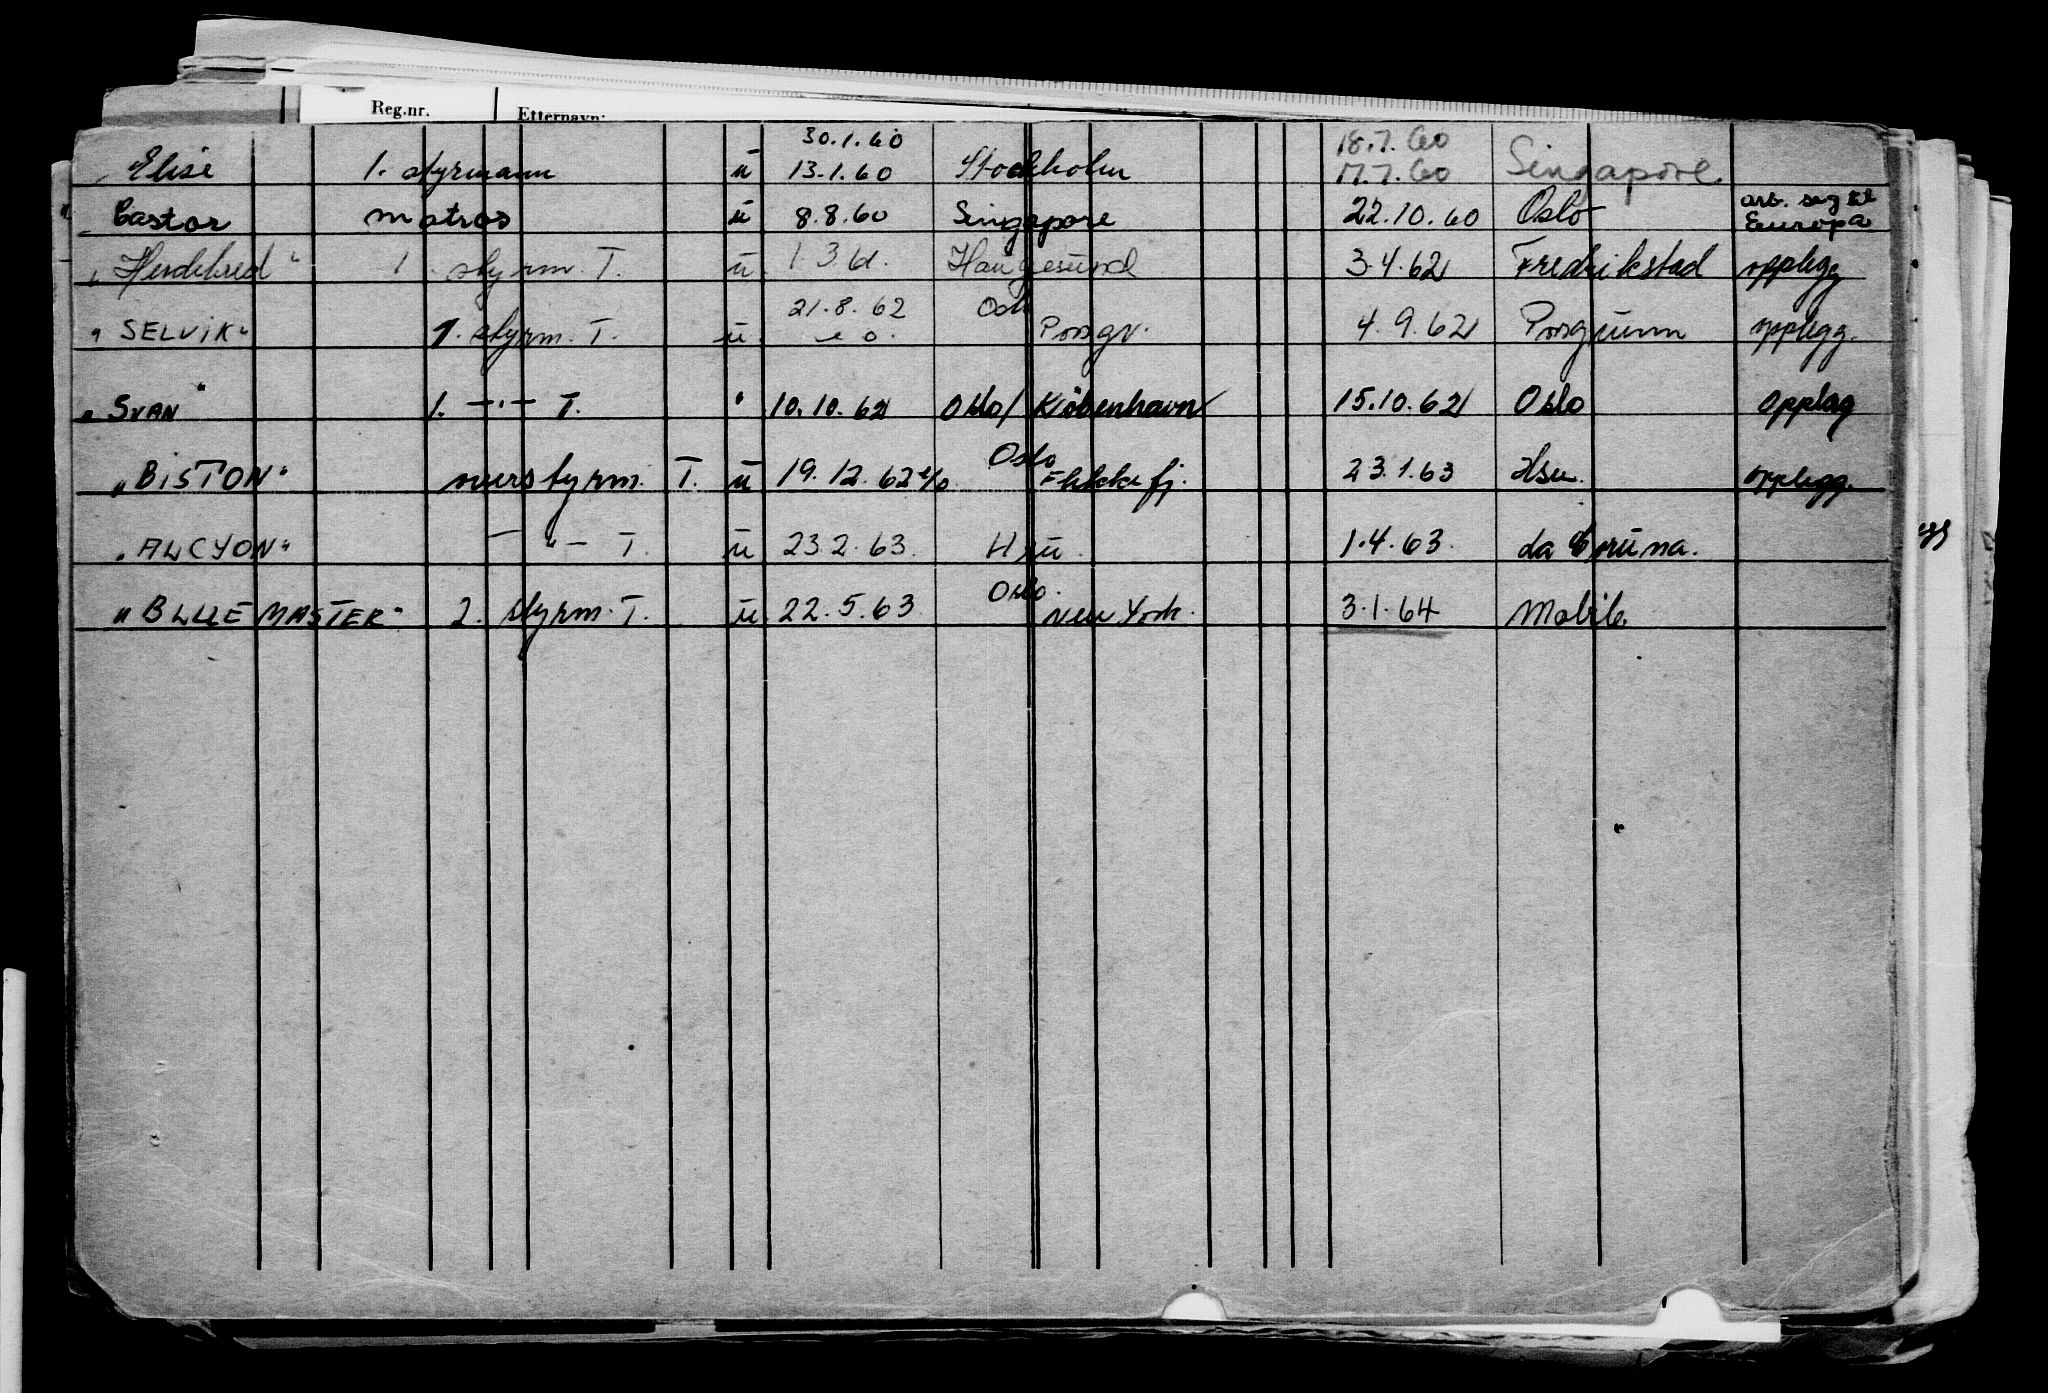 Reg.nr. Etternavn:
30.1.60 18.7.60
Elise 1. styrmann u 13.1.60 Stockholm 17.7.60 Singapore
Castor matros u 8.8.60 Singapore 22.10.60 Oslo arb. seg til Europa
"Herdebred" 1 styrm. T. u. 1.3.61. Haugesund 3.4.62 Fredrikstad opplegg
21.8.62 Oslo
"SELVIK" 1. styrm. T. u. Porsgr. 4.9.62 Porsgrunn opplegg.
"SVAN" 1. —"— T. " 10.10.62 Oslo/København 15.10.62 Oslo Opplag
Oslo
"BISTON" overstyrm. T. u 19.12.62 Flekkefj. 23.1.63 Hsu. opplegg.
"ALCYON" —"— T. u 23.2.63. Hsu. 1.4.63. La Coruna.
Oslo.
"BLUE MASTER" 2. styrm. T. u. 22.5.63 New York. 3.1.64 Mobile.